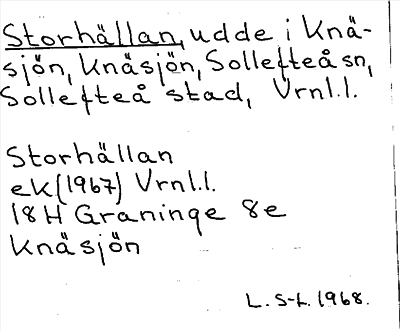 Storhällan, udde i Knä-
sjön, Knäsjön, Sollefteå sn,
Sollefteå stad, Vrnl.l.
Storhällan
ek(1967) Vrnl.l.
18H Graninge 8e
Knäsjön
L. S-L. 1968.